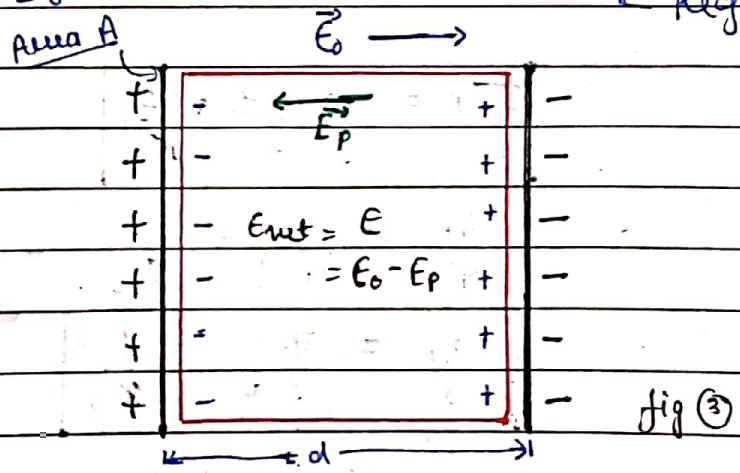 Area A
E₀ →
+ - ← + -
Eₚ
+ - + -
+ - Enet = E + -
+ - = E₀ - Eₚ + -
+ - + -
+ - + -
fig ③
d